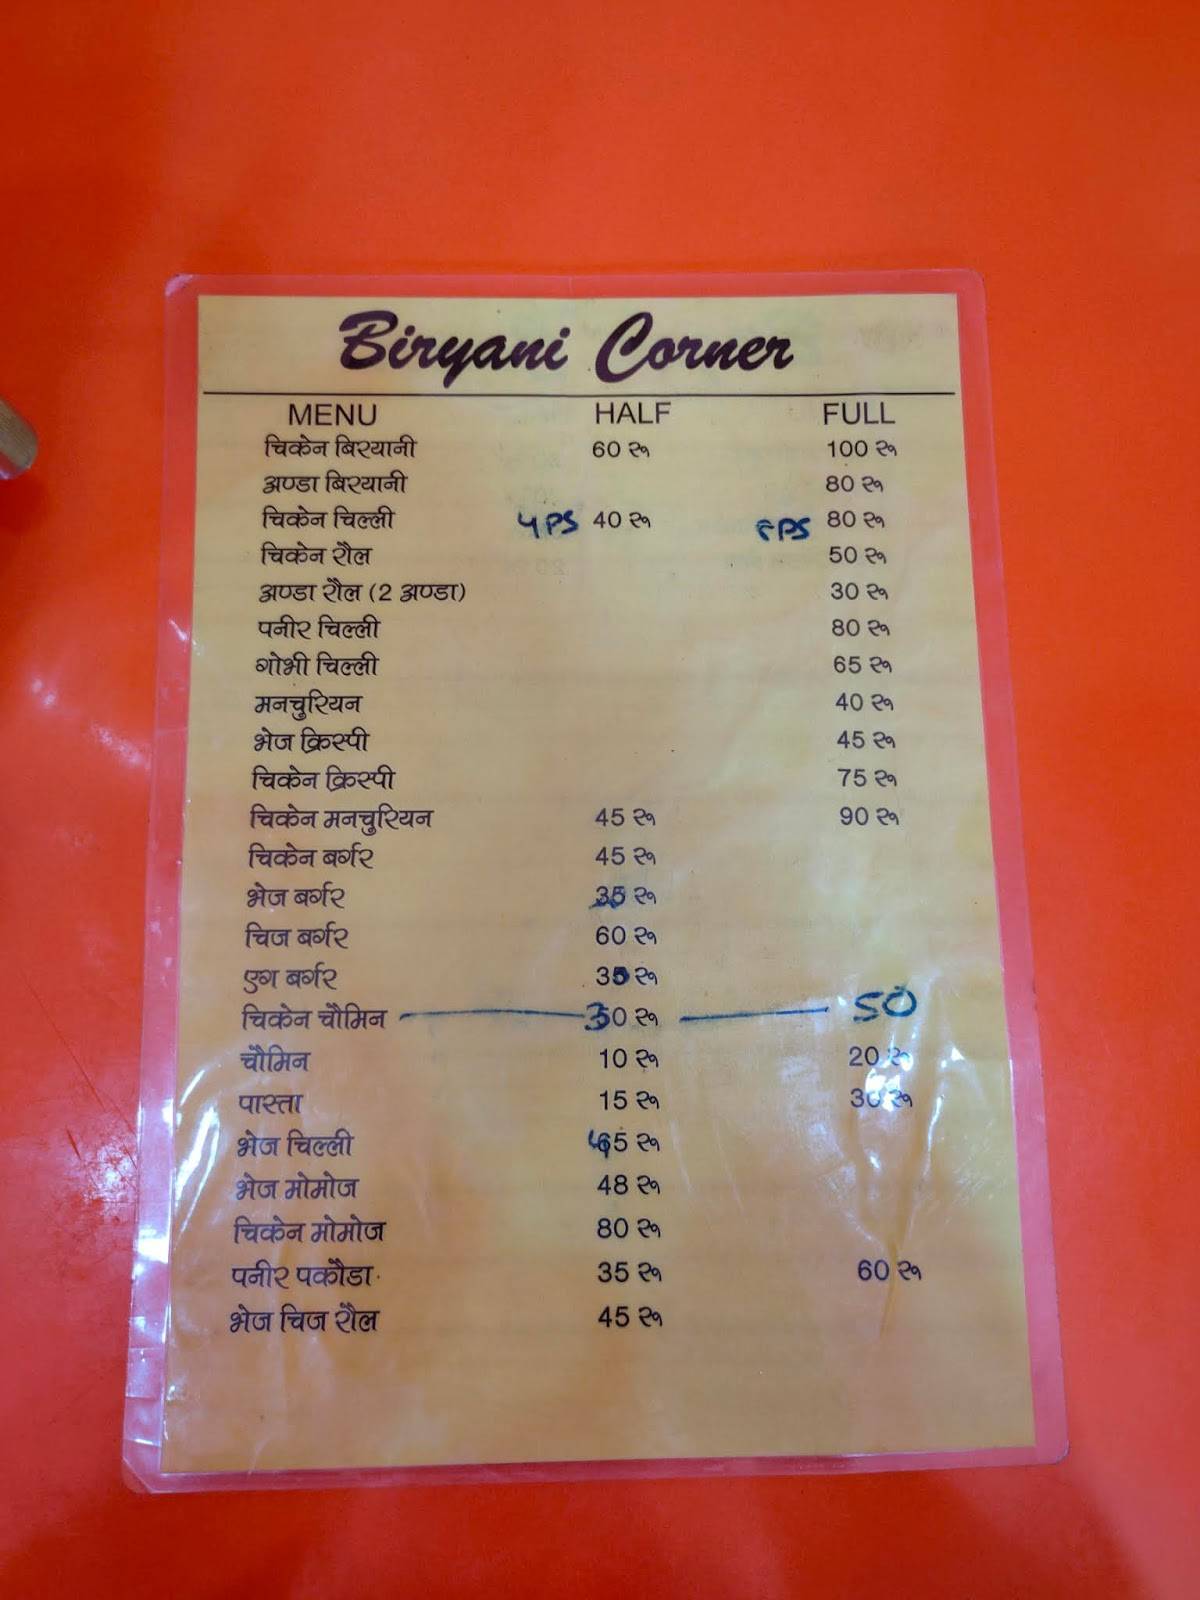 Biryani Corner
MENU HALF FULL
चिकेन बिरयानी 60 रू 100 रू
अण्डा बिरयानी 80 रू
चिकेन चिल्ली 4 PS 40 रू PS 80 रू
चिकेन रौल 50 रू
अण्डा रौल (2 अण्डा) 30 रू
पनीर चिल्ली 80 रू
गोभी चिल्ली 65 रू
मनचुरियन 40 रू
भेज क्रिस्पी 45 रू
चिकेन क्रिस्पी 75 रू
चिकेन मनचुरियन 45 रू 90 रू
चिकेन बर्गर 45 रू
भेज बर्गर रू
चिज बर्गर 60 रू
एग बर्गर रू
चिकेन चौमिन 30 रू 50
चौमिन 10 रू 20 रू
पास्ता 15 रू 30 रू
भेज चिल्ली रू
भेज मोमोज 48 रू
चिकेन मोमोज 80 रू
पनीर पकौडा 35 रू 60 रू
भेज चिज रौल 45 रू